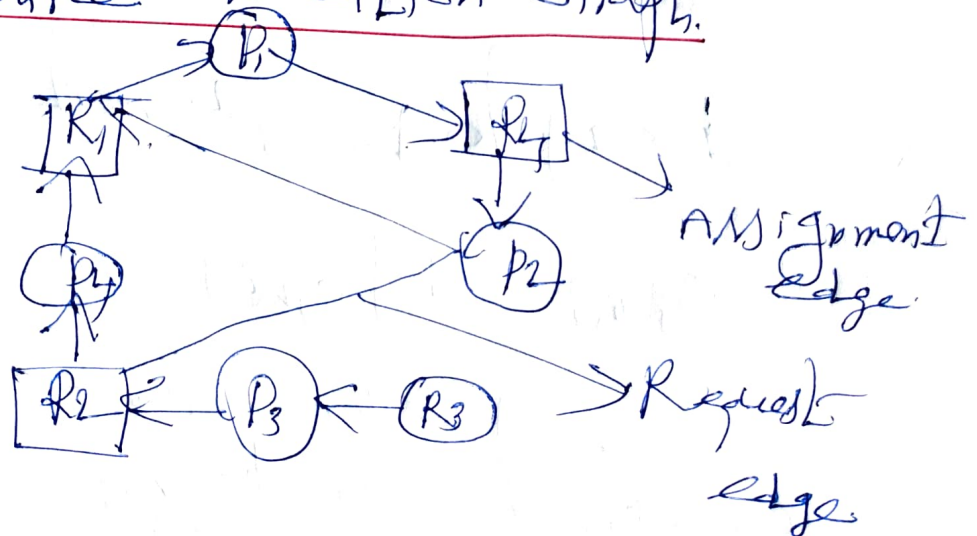 P1
R1
R4
Assignment
edge.
P2
P4
R2
P3
R3
Request
edge.